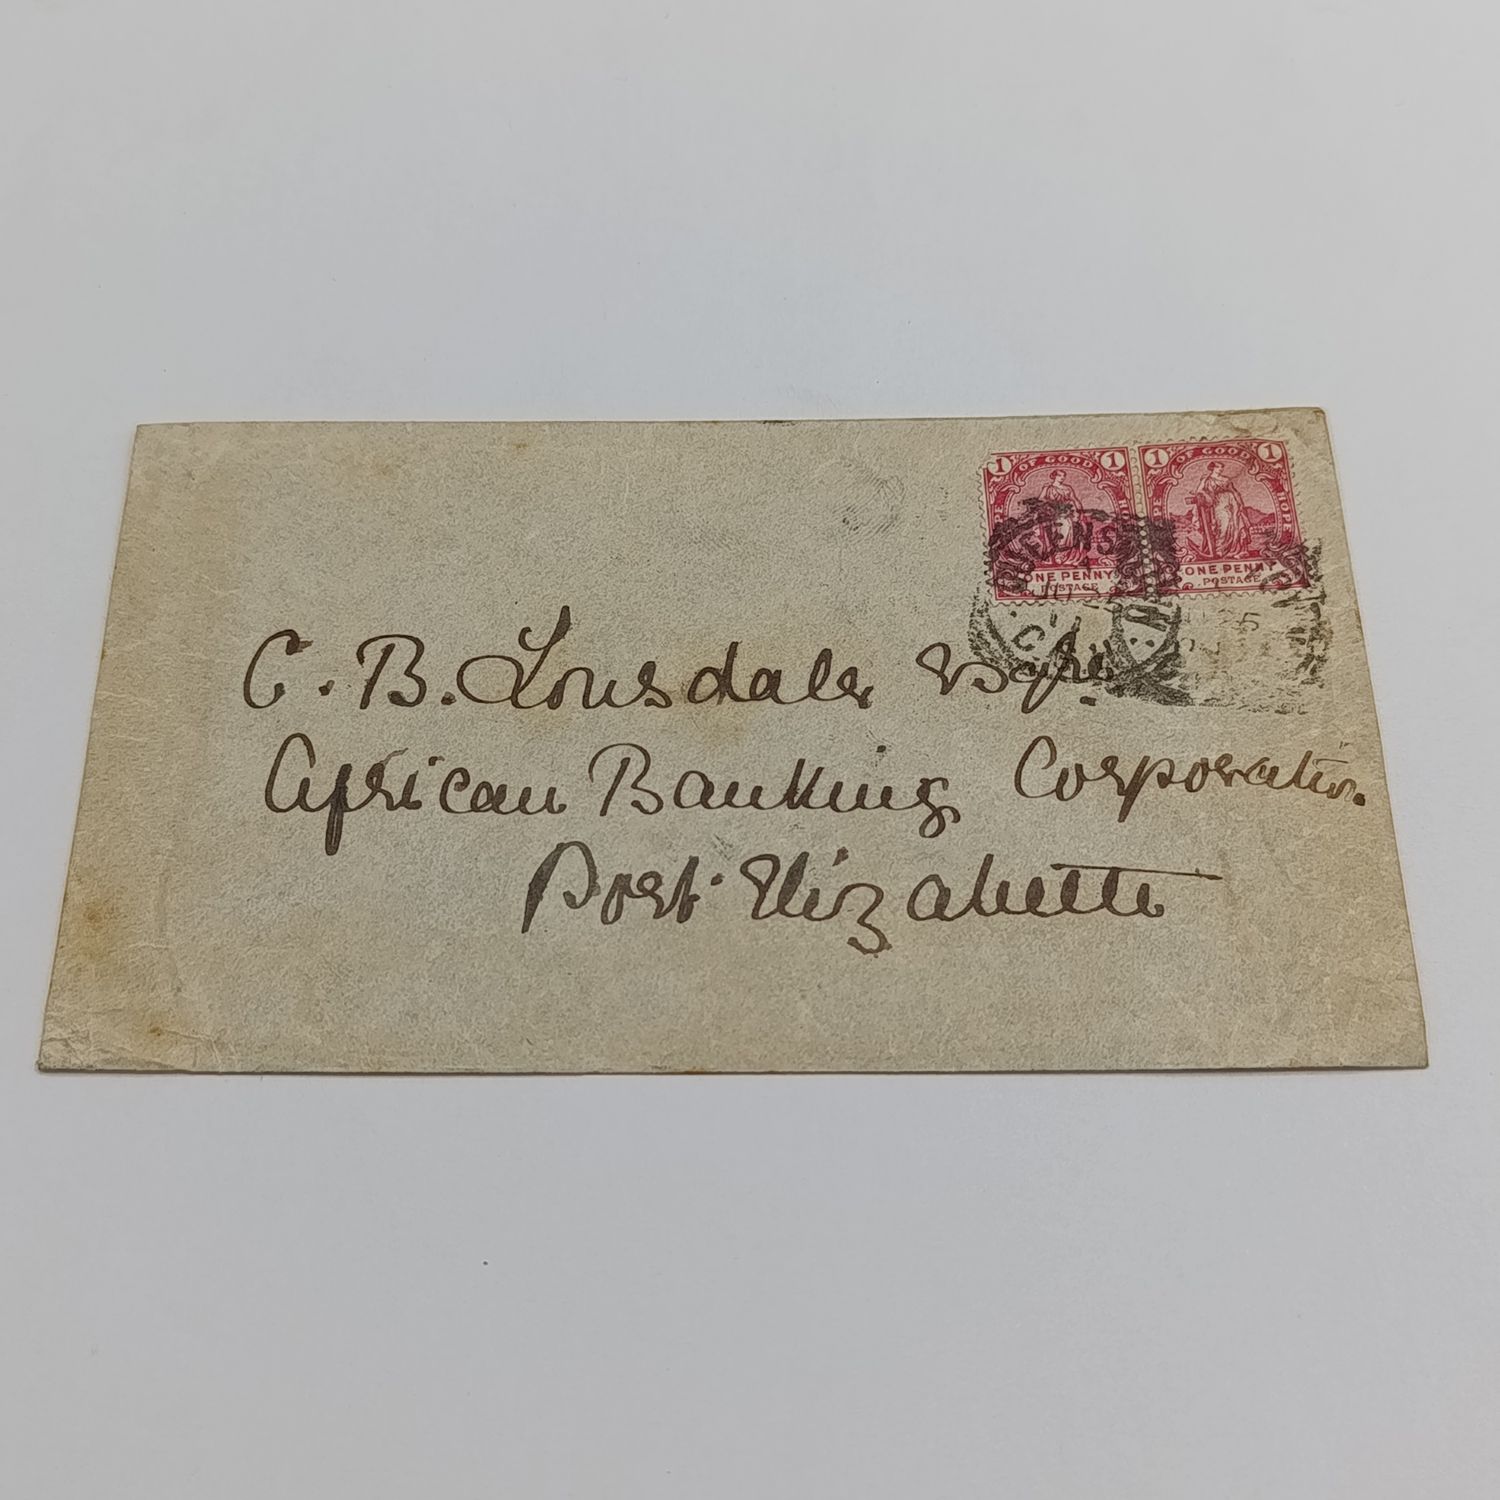 1 OF GOOD 1
HOPE
ONE PENNY
POSTAGE
1 OF GOOD 1
HOPE
ONE PENNY
POSTAGE
QUEENS
25
C. B. Lonsdale Esqre.
African Banking Corporation.
Port Elizabeth